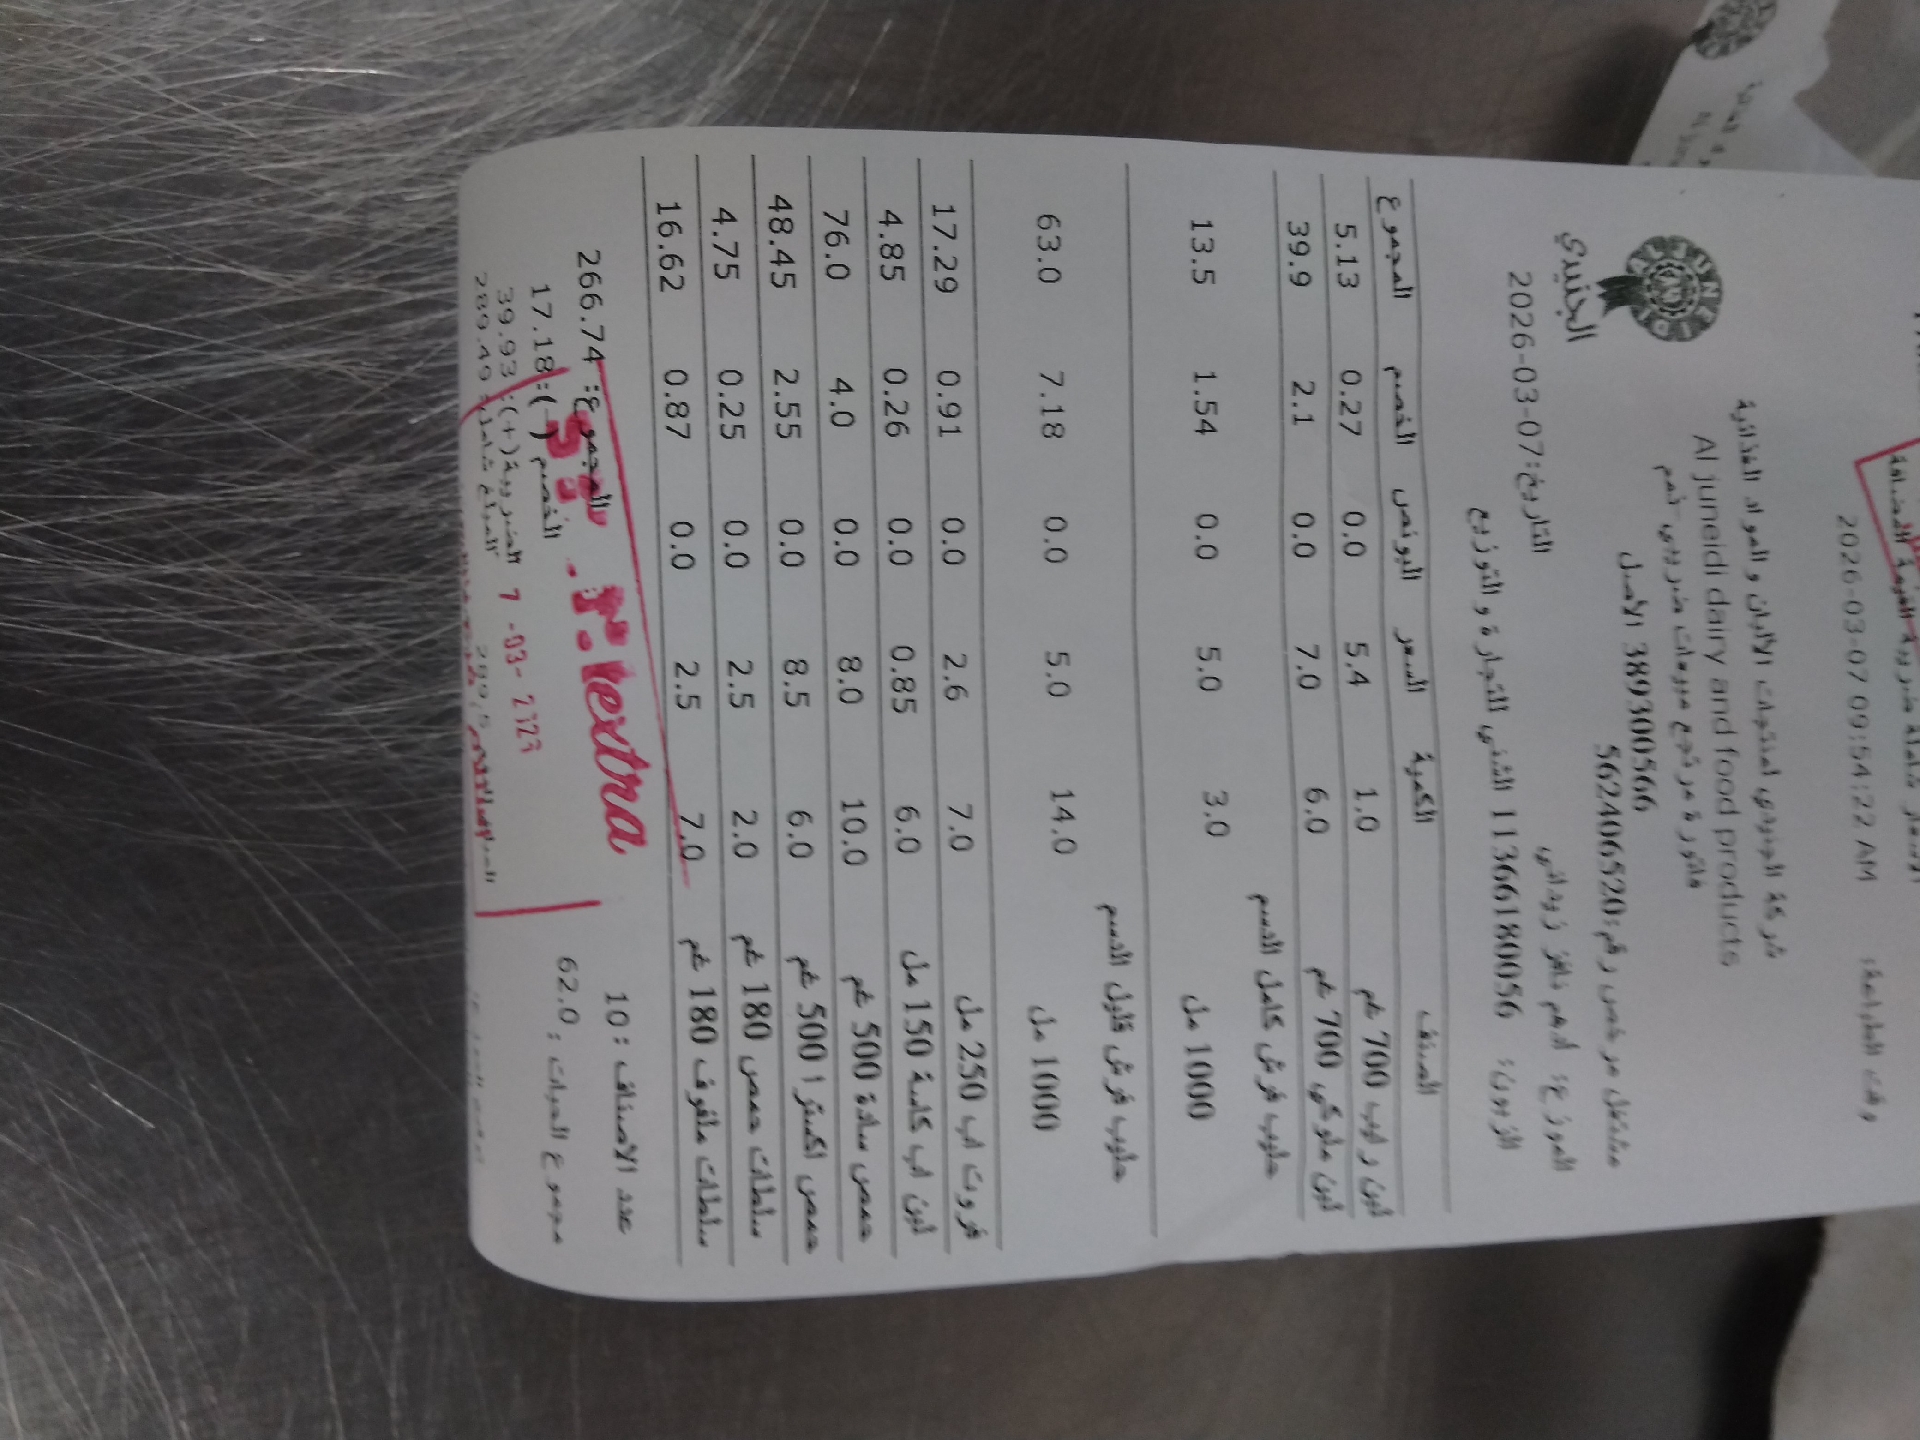 2026-03-07 09:54:22 AM
شركة الجنيدي لمنتجات الالبان و المواد الغذائية
Al juneidi dairy and food products
فاتورة مرتجع مبيعات ضريبي رقم
389300566 الاصل
مشتغل مرخص رقم:562406520
AL JUNEIDI
الجنيدي
التاريخ:2026-03-07
الموزع:
الزبون: 11366180056 الثني للتجارة و التوزيع
الصنف الكمية السعر البونص الخصم المجموع
لبن رايب 700 غم 1.0 5.4 0.0 0.27 5.13
لبن ملوكي 700 غم 6.0 7.0 0.0 2.1 39.9
حليب فرش كامل الدسم
1000 مل 3.0 5.0 0.0 1.54 13.5
حليب فرش قليل الدسم
1000 مل 14.0 5.0 0.0 7.18 63.0
فروت اب 250 مل 7.0 2.6 0.0 0.91 17.29
لبن اب كاسة 150 مل 6.0 0.85 0.0 0.26 4.85
حمص سادة 500 غم 10.0 8.0 0.0 4.0 76.0
حمص اكسترا 500 غم 6.0 8.5 0.0 2.55 48.45
سلطات حمص 180 غم 2.0 2.5 0.0 0.25 4.75
سلطات ملفوف 180 غم 7.0 2.5 0.0 0.87 16.62
عدد الاصناف : 10
المجموع: 266.74
مجموع الحبات : 62.0
الخصم (-): 17.18
الضريبة(+): 39.93
المبلغ شامل: 289.49
extra